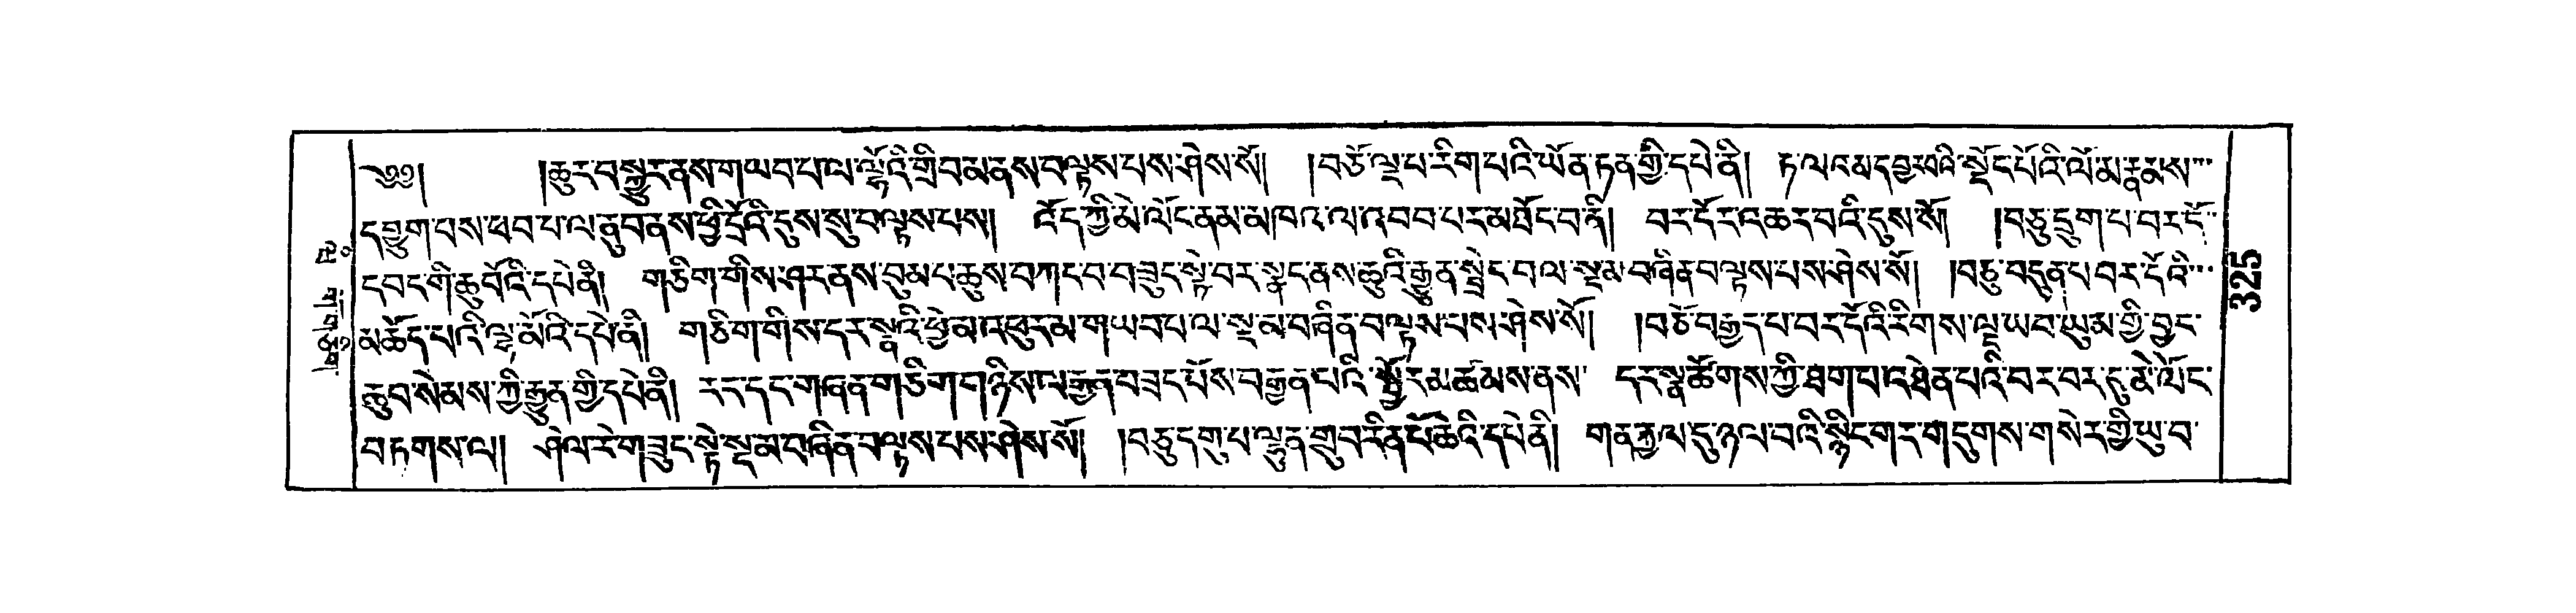 ༄༅། །ཆུར་བསྐྱུར་ནས་གཡབ་པ་ལ་ལྷོའི་གྲིབ་མ་ནས་བལྟས་པས་ཤེས་སོ། །བཅོ་ལྔ་པ་རིག་པའི་ཡོན་ཏན་གྱི་དཔེ་ནི། ཏ་ལའམ་དབྱར་ཁའི་སྡོང་པོའི་ལོ་མ་རྣམས་
དབྱུག་པས་ཕབ་པ་ལ་ནུབ་ནས་ཕྱི་དྲོའི་དུས་སུ་བལྟས་པས། འོད་ཀྱི་མེ་ལོང་ནམ་མཁའ་ལ་འབབ་པར་མཐོང་བ་ནི། བར་དོར་འཆར་བའི་དུས་སོ། །བཅུ་དྲུག་པ་བར་དོ་
དབང་གི་ཆུ་བོའི་དཔེ་ནི། གཅིག་གིས་ཤར་ནས་བུམ་པ་ཆུས་བཀང་བ་བཟུང་སྟེ་བར་སྣང་ནས་ཆུའི་རྒྱུན་སྦྲེང་བ་ལ་སྔ་མ་བཞིན་བལྟས་པས་ཤེས་སོ། །བཅུ་བདུན་པ་བར་དོའི་
མཆོད་པའི་ལྷ་མོའི་དཔེ་ནི། གཅིག་གིས་དར་སྣའི་ཕྱེ་མ་འཕུར་མ་གཡབ་པ་ལ་སྔ་མ་བཞིན་བལྟས་པས་ཤེས་སོ། །བཅོ་བརྒྱད་པ་བར་དོའི་རིགས་ལྔ་ཡབ་ཡུམ་གྱི་བྱང་
ཆུབ་སེམས་ཀྱི་རྒྱུན་གྱི་དཔེ་ནི། རང་དང་གཞན་གཅིག་གཉིས་ལ་རྒྱན་བཟང་པོས་བརྒྱན་པའི་ མཚམས་ནས་ དར་སྣ་ཚོགས་ཀྱི་ཐག་པ་འཐེན་པའི་བར་བར་དུ་མེ་ལོང་
བཏགས་ལ། ཤེལ་རེ་གཟུང་སྟེ་སྔ་མ་བཞིན་བལྟས་པས་ཤེས་སོ། །བཅུ་དགུ་པ་ལྷུན་གྲུབ་རིན་པོ་ཆེའི་དཔེ་ནི། གན་རྐྱལ་དུ་ཉལ་བའི་སྙིང་གར་གདུགས་གསེར་གྱི་ཡུ་བ་